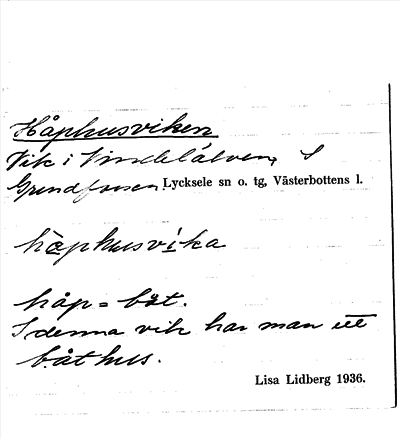 Håphusviken
Vik i Vindelälven, S
Grundforsen Lycksele sn o. tg, Västerbottens l.
håphusvika
håp = båt.
I denna vik har man ett
båthus.
Lisa Lidberg 1936.